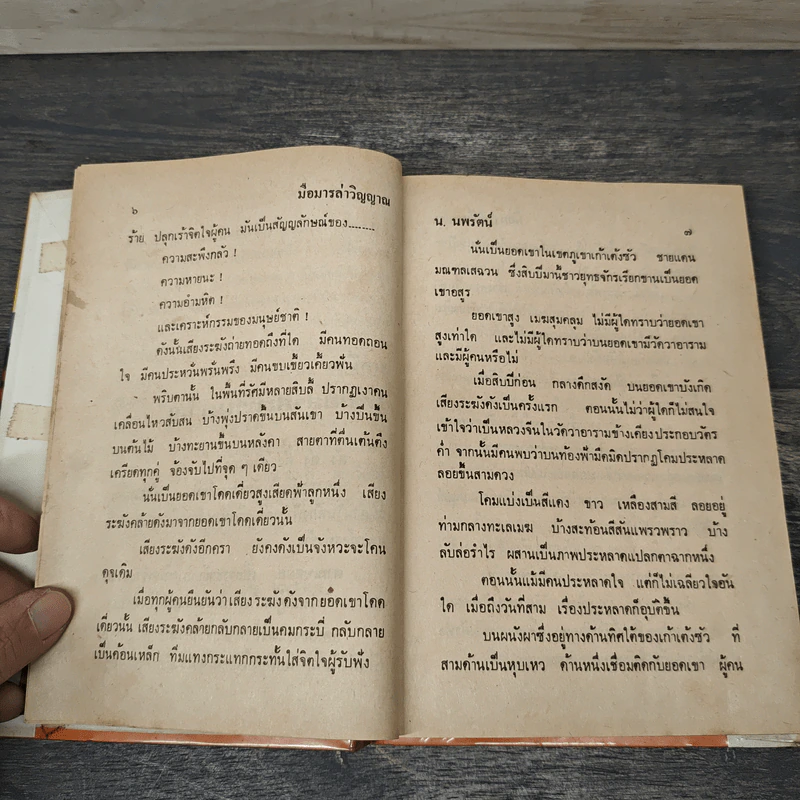 ๖
มือมารล่าวิญญาณ
ร้าย ปลุกเร้าจิตใจผู้คน มันเป็นสัญญลักษณ์ของ........
ความสะพึงกลัว !
ความหายนะ !
ความอำมหิต !
และเคราะห์กรรมของมนุษย์ชาติ !
ดังนั้นเสียงระฆังถ่ายทอดถึงที่ใด มีคนทอดถอน
ใจ มีคนประหวั่นพรั่นพรึง มีคนขบเขี้ยวเคี้ยวฟัน
พริบตานั้น ในพื้นที่รัศมีหลายสิบลี้ ปรากฏเงาคน
เคลื่อนไหวสับสน บ้างพุ่งปราดขึ้นบนสันเขา บ้างปีนขึ้น
บนต้นไม้ บ้างทะยานขึ้นบนหลังคา สายตาที่ตื่นเต้นตึง
เครียดทุกคู่ จ้องจับไปที่จุด ๆ เดียว
นั่นเป็นยอดเขาโดดเดี่ยวสูงเสียดฟ้าลูกหนึ่ง เสียง
ระฆังคล้ายดังมาจากยอดเขาโดดเดี่ยวนั้น
เสียงระฆังดังอีกครา ยังคงดังเป็นจังหวะจะโคน
ดุจเดิม
เมื่อทุกผู้คนยืนยันว่าเสียงระฆังดังจากยอดเขาโดด
เดี่ยวนั้น เสียงระฆังคล้ายกลับกลายเป็นคมกระบี่ กลับกลาย
เป็นค้อนเหล็ก ทิ่มแทงกระแทกกระทั้นใส่จิตใจผู้รับฟัง
น. นพรัตน์
๗
นั่นเป็นยอดเขาในเขตภูเขาเก้าเต้งซัว ชายแดน
มณฑลเสฉวน ซึ่งสิบปีมานี้ชาวยุทธจักรเรียกขานเป็นยอด
เขาอสูร
ยอดเขาสูง เมฆสุมคลุม ไม่มีผู้ใดทราบว่ายอดเขา
สูงเท่าใด และไม่มีผู้ใดทราบว่าบนยอดเขามีวัดวาอาราม
และมีผู้คนหรือไม่
เมื่อสิบปีก่อน กลางดึกสงัด บนยอดเขาบังเกิด
เสียงระฆังดังเป็นครั้งแรก ตอนนั้นไม่ว่าผู้ใดก็ไม่สนใจ
เข้าใจว่าเป็นหลวงจีนในวัดวาอารามข้างเคียงประกอบวัตร
ค่ำ จากนั้นมีคนพบว่าบนท้องฟ้ามืดมิดปรากฏโคมประหลาด
ลอยขึ้นสามดวง
โคมแบ่งเป็นสีแดง ขาว เหลืองสามสี ลอยอยู่
ท่ามกลางทะเลเมฆ บ้างสะท้อนสีสันแพรวพราว บ้าง
ลับล่อรำไร ผสานเป็นภาพประหลาดแปลกตาฉากหนึ่ง
ตอนนั้นแม้มีคนประหลาดใจ แต่ก็ไม่เฉลียวใจอัน
ใด เมื่อถึงวันที่สาม เรื่องประหลาดก็อุบัติขึ้น
บนผนังผาซึ่งอยู่ทางด้านทิศใต้ของเก้าเต้งซัว ที่
สามด้านเป็นหุบเหว ด้านหนึ่งเชื่อมติดกับยอดเขา ผู้คน